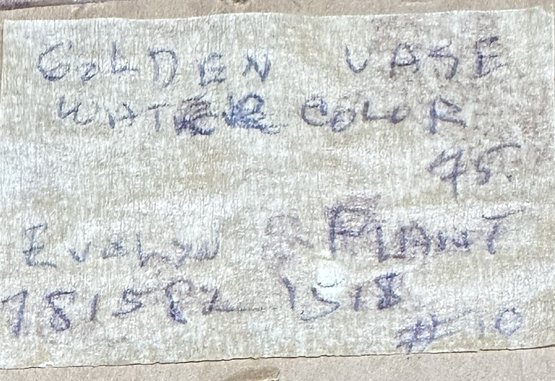 GOLDEN VASE
WATER COLOR
45.
PLANT
781582 1518
#10